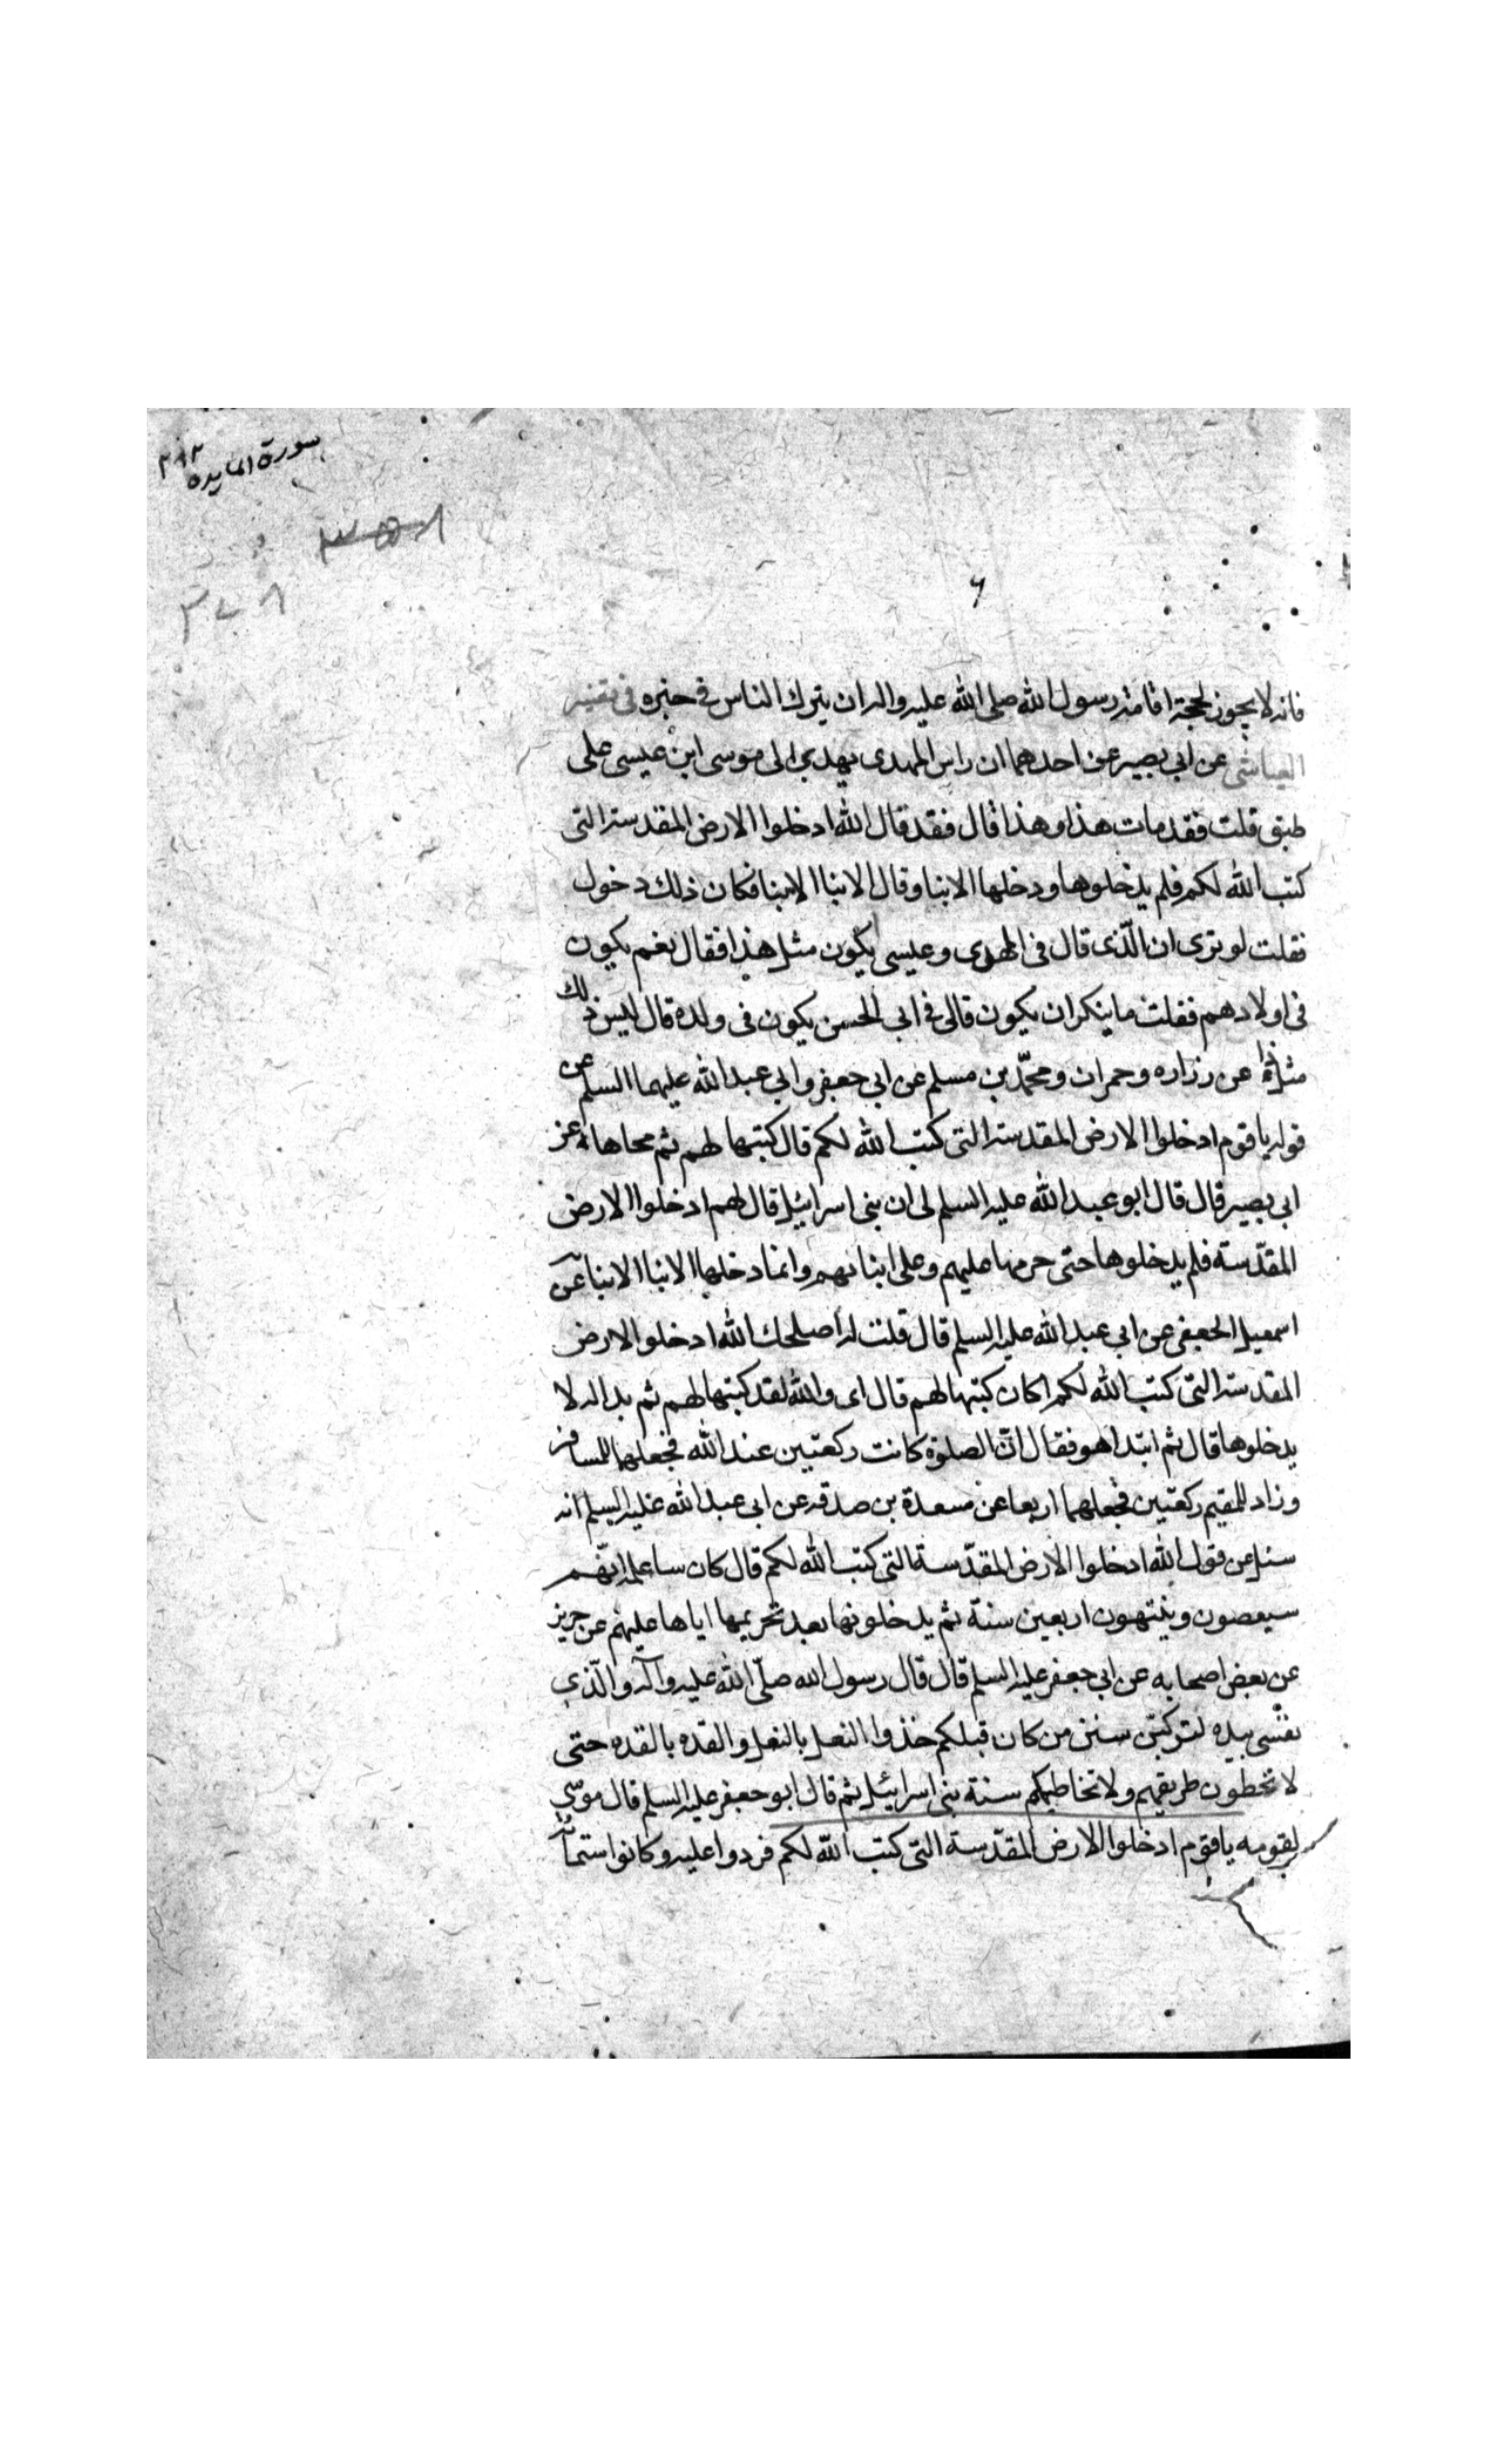 سورة المايده ٣٨٢
٣٥٨
٣٧٨
٦
فانه لا يجوز لحجة اقامه رسول الله صلى الله عليه واله ان يترك الناس في حيره في تفسير
العياشي عن ابي بصير عن احدهما ان راس المهدى يهدى الى موسى ابن عيسى على
طبق قلت فقد مات هذا وهذا قال فقد قال الله ادخلوا الارض المقدسة التى
كتب الله لكم فلم يدخلوها ودخلها الابنا وقال الابنا الابنا فكان ذلك دخول
فقلت لو ترى ان الّذى قال فى المهدى وعيسى يكون مثل هذا فقال نعم يكون
فى اولادهم فقلت ما ينكر ان يكون قال فى ابى الحسن يكون فى ولده قال ليس ذلك
مثل ذا عن زراره وحمران ومحمّد بن مسلم عن ابى جعفر وابى عبد الله عليهما السلم عن
قوله يا قوم ادخلوا الارض المقدسة التى كتب الله لكم قال كتبها لهم ثم محاها عن
ابى بصير قال قال ابو عبد الله عليه السلم لى ان بنى اسرائيل قال لهم ادخلوا الارض
المقدّسة فلم يدخلوها حتى حرمها عليهم وعلى ابنائهم وانما دخلها الابنا الابنا عن
اسمعيل الجعفى عن ابى عبد الله عليه السلم قال قلت له اصلحك الله ادخلوا الارض
المقدسة التى كتب الله لكم اكان كتبها لهم قال اى والله لقد كتبها لهم ثم بدا له لا
يدخلوها قال ثم ابتدا هو فقال انّ الصلوة كانت ركعتين عند الله فجعلها للمسافر
وزاد للمقيم ركعتين فجعلهما اربعا عن مسعدة بن صدقه عن ابى عبد الله عليه السلم انه
سئل عن قول الله ادخلوا الارض المقدّسة التى كتب الله لكم قال كان سا علم انّهم
سيعصون ويتيهون اربعين سنة ثم يدخلونها بعد تحريمها اياها عليهم عن حريز
عن بعض اصحابه عن ابى جعفر عليه السلم قال قال رسول الله صلّى الله عليه وآله والّذى
نفسى بيده لتركبنّ سنن من كان قبلكم حذوا النعل بالنعل والقده بالقده حتى
لا تخطون طريقهم ولا تخاطيكم سنة بنى اسرائيل ثم قال ابو جعفر عليه السلم قال موسى
لقومه يا قوم ادخلوا الارض المقدّسة التى كتب الله لكم فردوا عليه وكانوا ستمائة